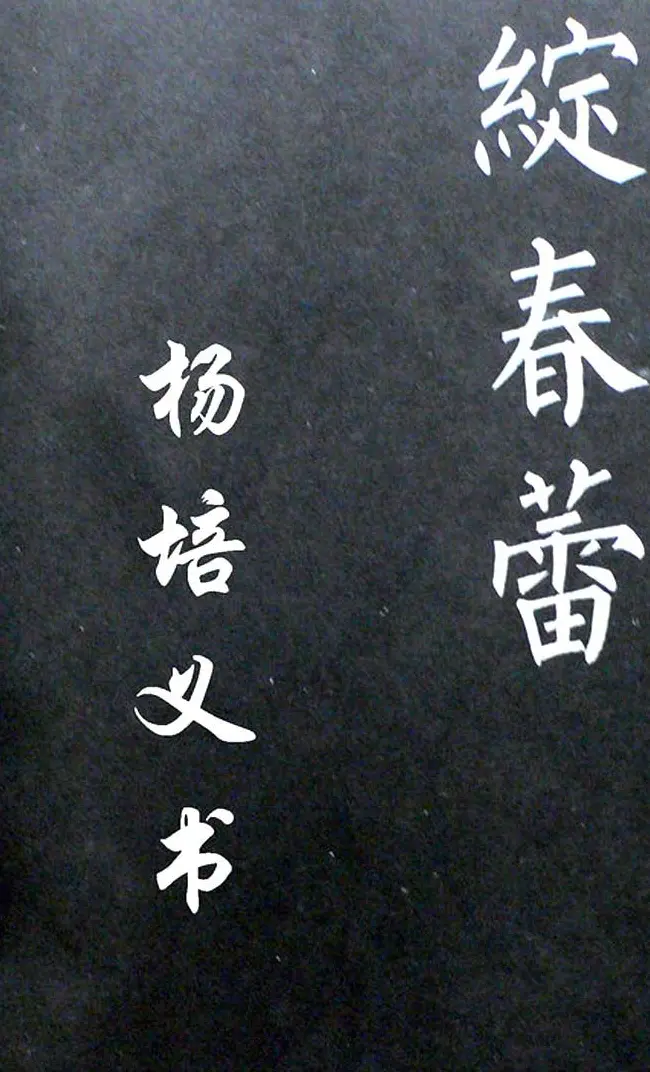 綻春蕾
杨培义书